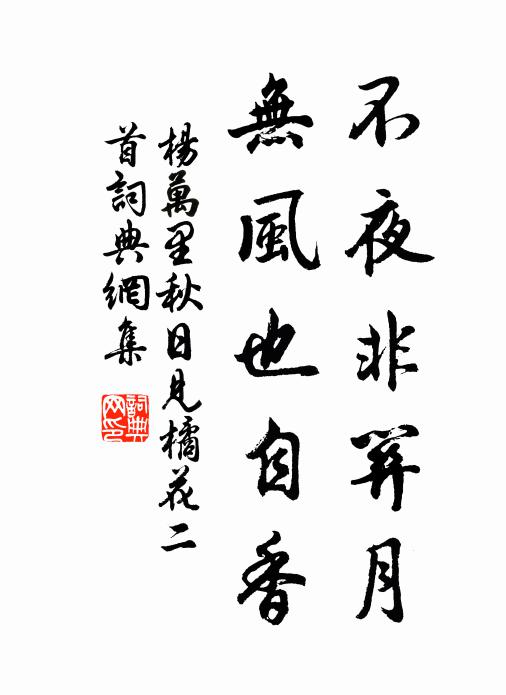 不夜非關月
無風也自香
楊萬里秋日見橘花二
首詞典網集
詞典
网印